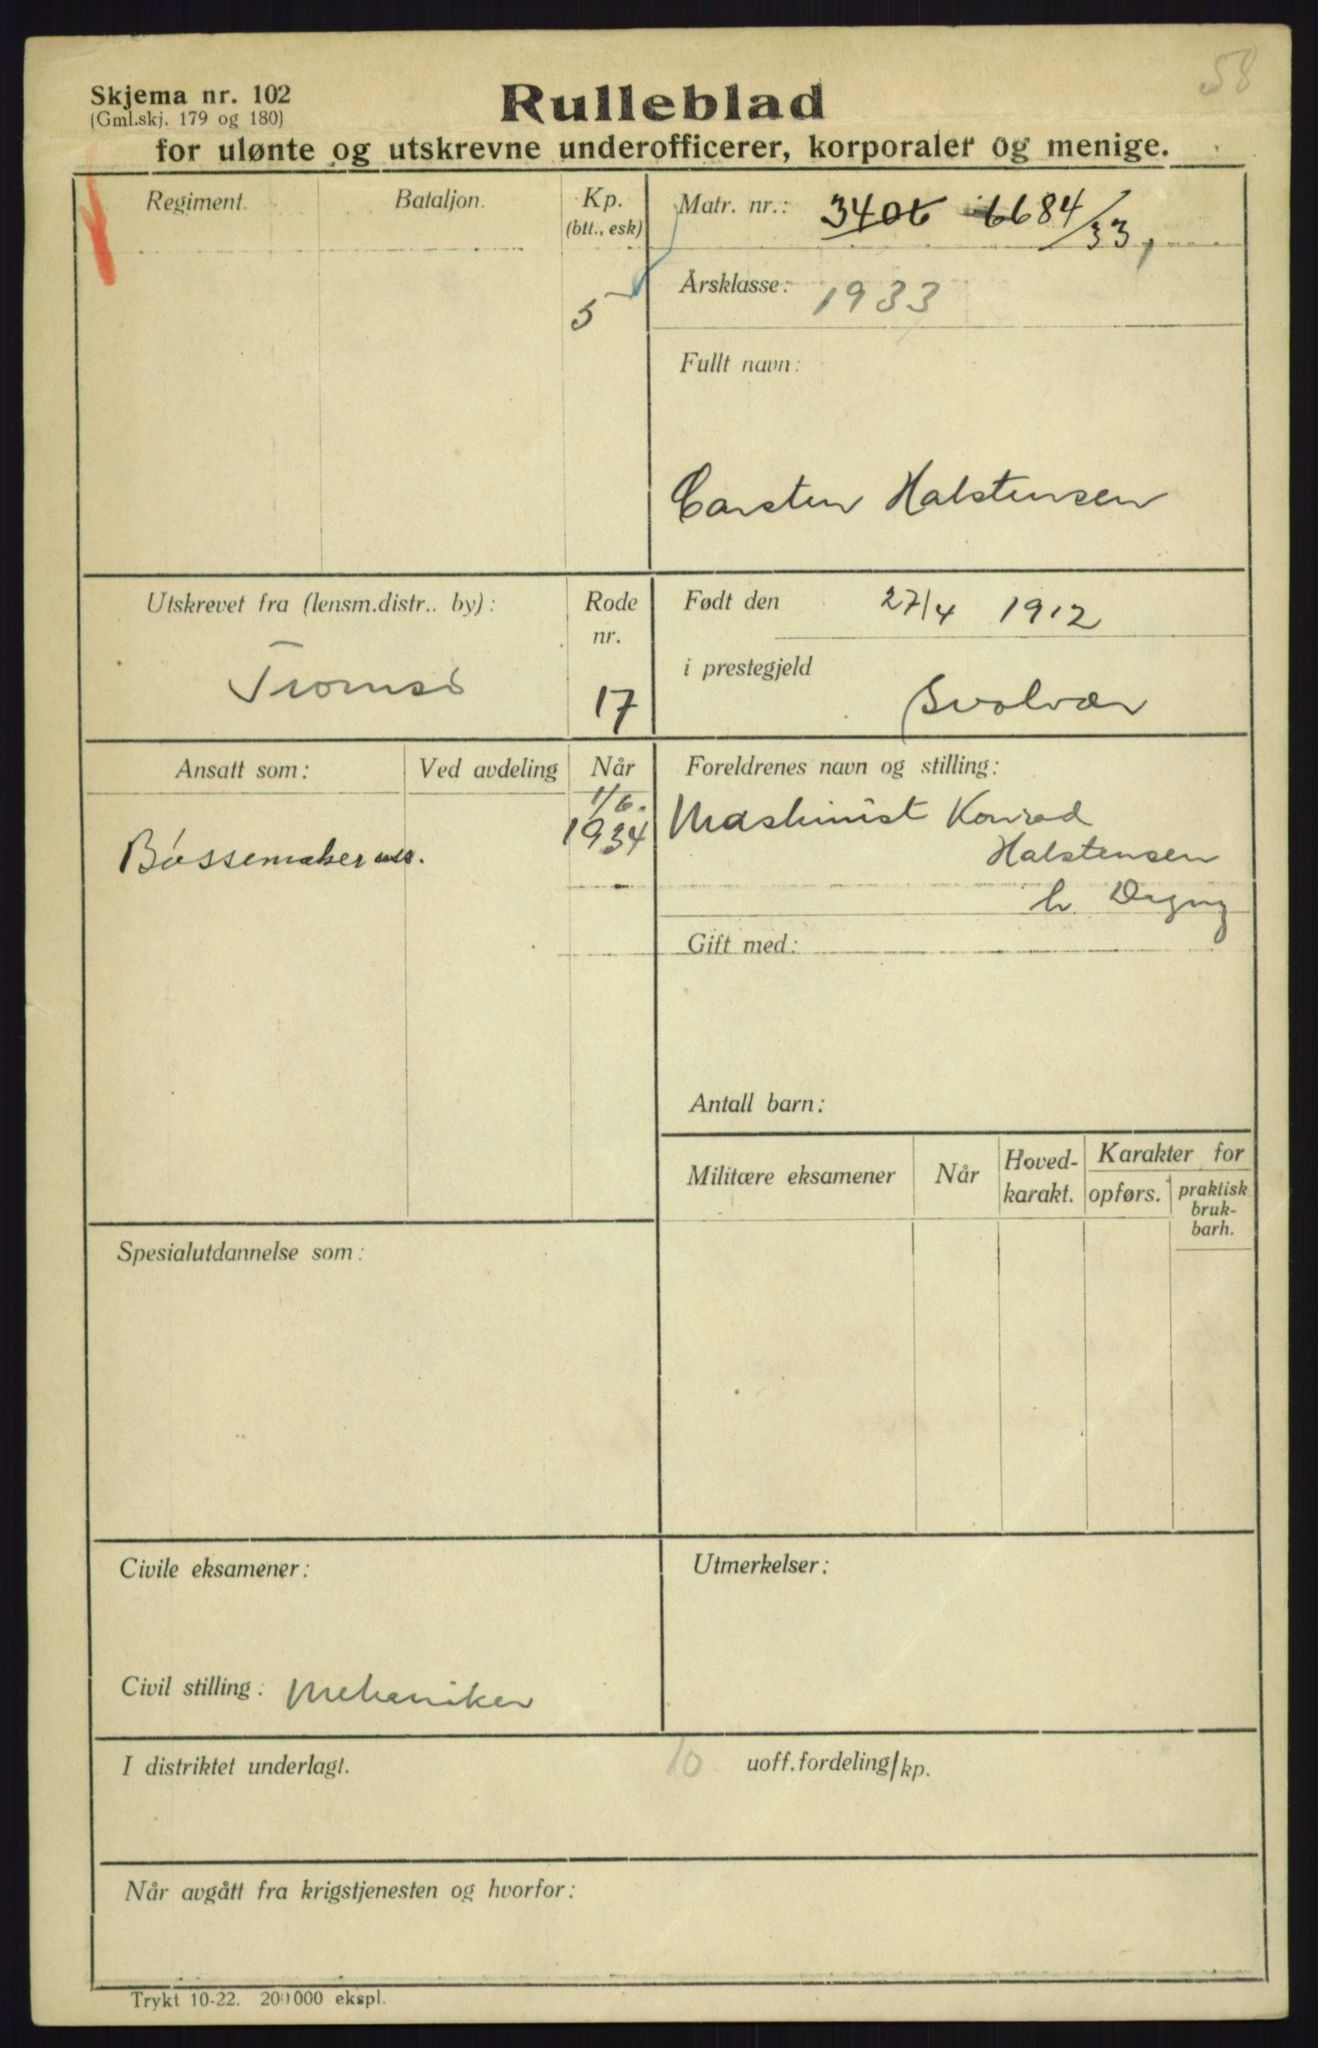 58
Skjema nr. 102
(Gml.skj. 179 og 180)
Rulleblad
for ulønte og utskrevne underofficerer, korporaler og menige.
Regiment. Bataljon. Kp.
(btt., esk)
5
Matr. nr.: 3406 6684/33,
Årsklasse: 1933
Fullt navn:
Carsten Halstensen
Utskrevet fra (lensm.distr.. by):
Tromsö
Rode
nr.
17
Født den 27/4 1912
i prestegjeld
Svolvær
Ansatt som: Ved avdeling Når
Bøssemaker
1/6.
1934
Foreldrenes navn og stilling:
Maskinist Konrad
Halstensen
h. Dagny
Gift med:
Antall barn:
Militære eksamener Når Hoved-
karakt. Karakter for
opførs. praktisk
bruk-
barh.
Spesialutdannelse som:
Civile eksamener:
Civil stilling: Mekaniker
Utmerkelser:
I distriktet underlagt. 10 uoff.fordeling/kp.
Når avgått fra krigstjenesten og hvorfor:
Trykt 10-22. 200000 ekspl.